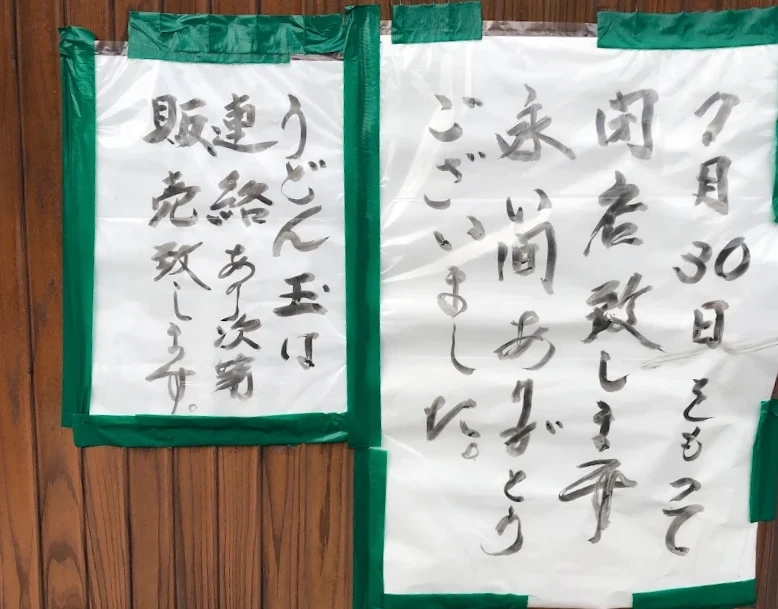 7月30日をもって
閉店致します
永い間ありがとう
ございました。
うどん玉は
連絡あり次第
販売致します。